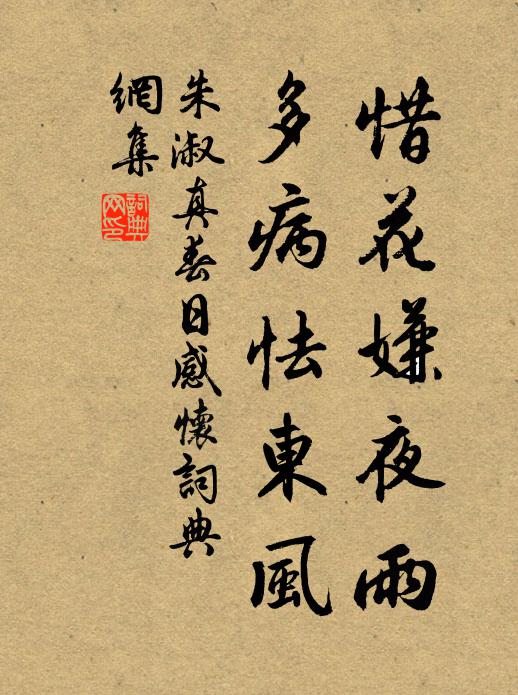 惜花嫌夜雨
多病怯東風
朱淑真春日感懷詞典
網集
詞典
网印